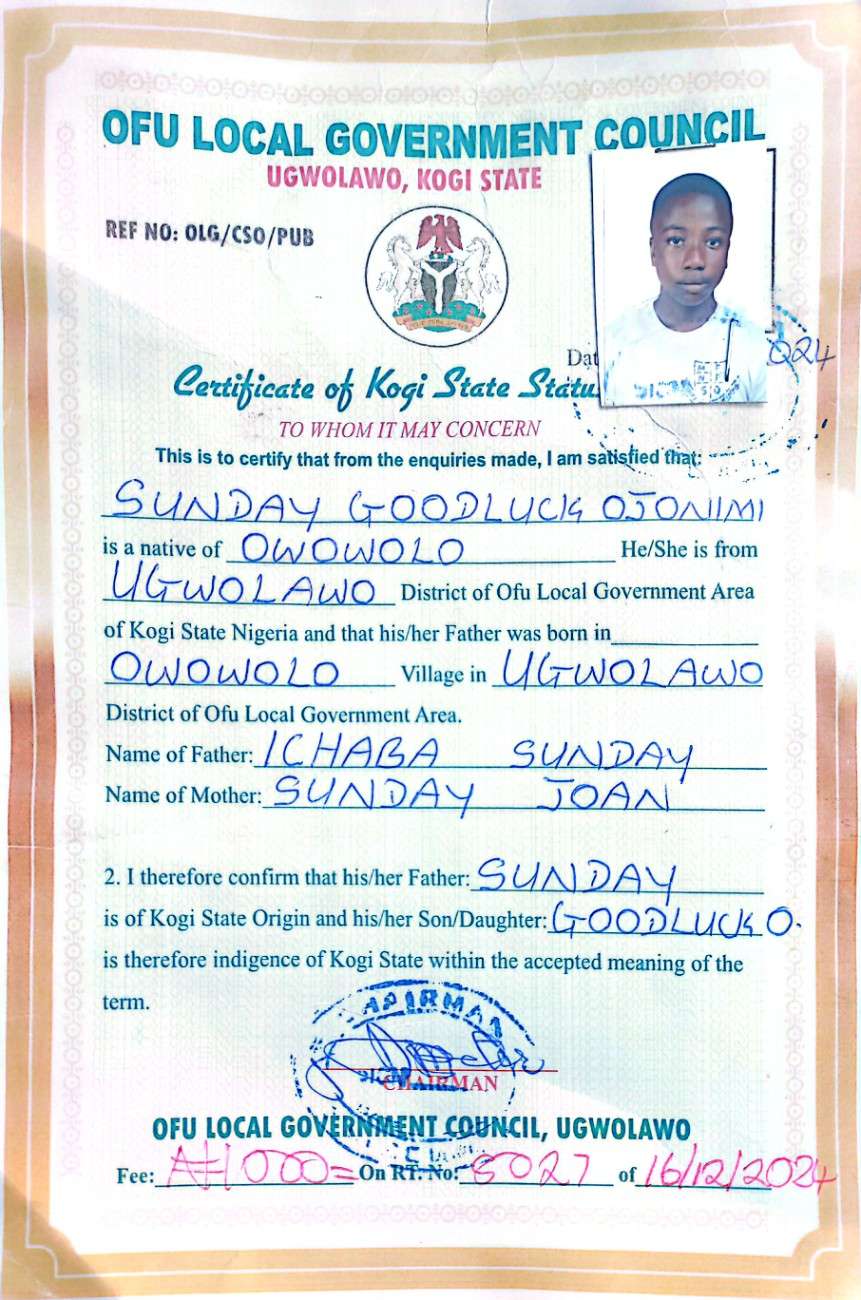 OFU LOCAL GOVERNMENT COUNCIL
UGWOLAWO, KOGI STATE
REF NO: OLG/CSO/PUB
Dat 024
Certificate of Kogi State Statu
TO WHOM IT MAY CONCERN
This is to certify that from the enquiries made, I am satisfied that:
SUNDAY GOODLUCK OJONIMI
is a native of OWOWOLO He/She is from
UGWOLAWO District of Ofu Local Government Area
of Kogi State Nigeria and that his/her Father was born in
OWOWOLO Village in UGWOLAWO
District of Ofu Local Government Area.
Name of Father: ICHABA SUNDAY
Name of Mother: SUNDAY JOAN
2. I therefore confirm that his/her Father: SUNDAY
is of Kogi State Origin and his/her Son/Daughter: GOODLUCK O.
is therefore indigence of Kogi State within the accepted meaning of the
term.
CHAIRMAN
OFU LOCAL GOVERNMENT COUNCIL, UGWOLAWO
Fee: ₦1000= On RT. No: 6027 of 16/12/2024